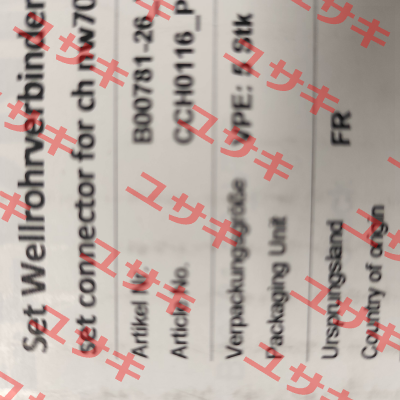 Set Wellrohrverbinder
set connector for ch nw70
Artikel Nr. B00781-26_
Article No. CCH0116_P
Verpackungsgröße VPE: 5 Stk
Packaging Unit
Ursprungsland FR
Country of origin
ユサキ
ユサキ
ユサキ
ユサキ
ユサキ
ユサキ
ユサキ
ユサキ